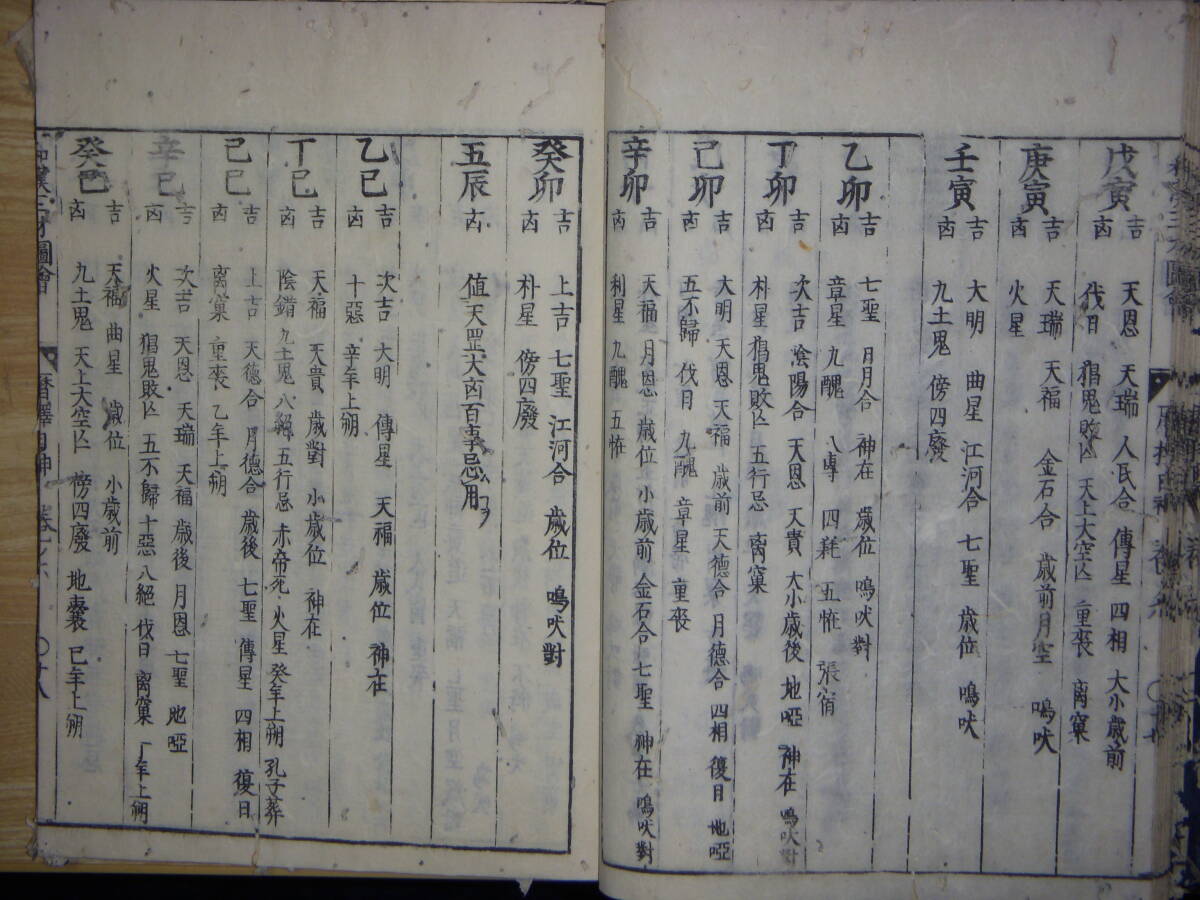 戊寅
吉 天恩 天瑞 人民合 傳星 四相 大小歳前
凶 伐日 猖鬼敗亡 天上大空亡 重喪 离窠
庚寅
吉 天瑞 天福 金石合 歳前 月空 鳴吠
凶 火星
壬寅
吉 大明 曲星 江河合 七聖 歳位 鳴吠
凶 九土鬼 傍四廢
乙卯
吉 七聖 月月合 神在 歳位 鳴吠對
凶 章星 九醜 八専 四耗 五恠 張宿
丁卯
吉 次吉 陰陽合 天恩 天貴 大小歳後 地啞 神在 鳴吠對
凶 朴星 猖鬼敗亡 五行忌 离窠
己卯
吉 大明 天恩 天福 歳前 天德合 月德合 四相 復日 地啞
凶 五不歸 伐日 九醜 章星 重喪
辛卯
吉 天福 月恩 歳位 小歳前 金石合 七聖 神在 鳴吠對
凶 利星 九醜 五恠
癸卯
吉 上吉 七聖 江河合 歳位 鳴吠對
凶 朴星 傍四廢
五辰 凶 值天罡大凶百事忌用フ
乙巳
吉 次吉 大明 傳星 天福 歳位 神在
凶 十惡 辛年上朔
丁巳
吉 天福 天貴 歳對 小歳位 神在
凶 陰錯 九土鬼 八絕 五行忌 赤帝死 火星 癸年上朔 孔子葬
己巳
吉 上吉 天德合 月德合 歳後 七聖 傳星 四相 復日
凶 离窠 重喪 乙年上朔
辛巳
吉 次吉 天恩 天瑞 天福 歳後 月恩 七聖 地啞
凶 火星 猖鬼敗亡 五不歸 十惡 八絕 伐日 离窠 丁年上朔
癸巳
吉 天福 曲星 歳位 小歳前
凶 九土鬼 天上大空亡 傍四廢 地囊 巳年上朔
和漢三才圖會 暦擇日神